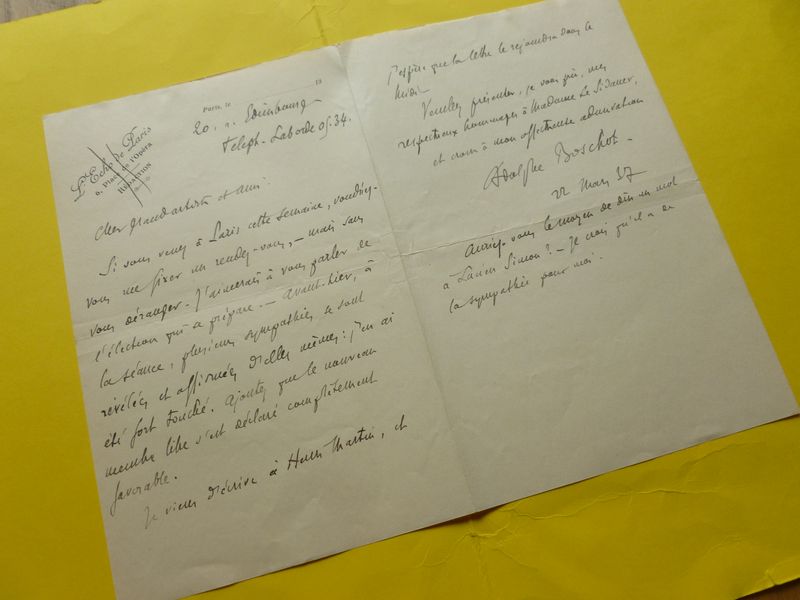 L'Echo de Paris
6, Place de l'Opéra
RÉDACTION
Paris, le 19
20, r. Edimbourg
Téléph. Laborde 05.34.
Cher Grand artiste et ami,
Si vous venez à Paris cette semaine, voudriez-
vous me fixer un rendez-vous, — mais sans
vous déranger. J'aimerais à vous parler de
l'élection qui se prépare. — Avant-hier, à
la séance, plusieurs sympathies se sont
révélées et affirmées d'elles mêmes : j'en ai
été fort touché. Ajoutez que le nouveau
membre libre s'est déclaré complètement
favorable.
Je viens d'écrire à Henri Martin, et
j'espère que la lettre le rejoindra dans le
Midi.
Veuillez présenter, je vous prie, mes
respectueux hommages à Madame Le Sidaner,
et croire à mon affectueuse admiration
Adolphe Boschot
22 Mars 37
Auriez-vous le moyen de dire un mot
à Lucien Simon ? — Je crois qu'il a de
la sympathie pour moi.